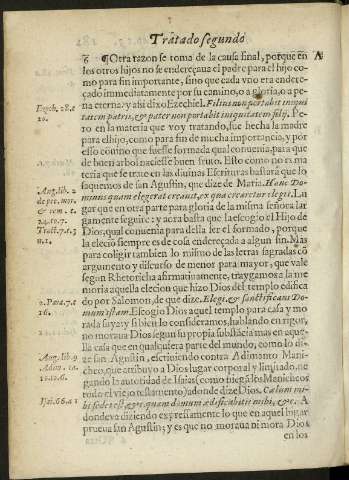 Tratado segundo
6 ¶ Otra razon se toma de la causa final, porque en A
los otros hijos no se endereçaua el padre para el hijo co-
mo para fin importante, sino que cada vno era endere-
çado immediatamente por su camino, o a gloria, o a pe
na eterna: y asi dixo Ezechiel. Filius non portabit iniqui
Ezech. 18. c
20.
tatem patris, & pater non portabit iniquitatem filij. Pe-
ro en la materia que voy tratando, fue hecha la madre
para el hijo, como para fin de mucha importancia, y por
esso conuino que fuesse formada qual conuenia, para que
de buen arbol naciesse buen fruto. Esto como no es ma
teria que se trate en las diuinas Escrituras bastará que lo
saquemos de san Agustin, que dize de Maria. Hanc Do-
Aug. lib. 2
minus quam elegerat creauit, ex qua crearetur elegit. La
de pec. mer.
gar que en otra parte para gloria de la misma señora lar
gamente segui: y aora basta que la escogio el Hijo de
Dios, qual conuenia para della ser el formado, porque
la elecció siempre es de cosa endereçada a algun fin. Mas
para coligir tambien lo mismo de las letras sagradas có
argumento y discurso de menor para mayor, que vale
segun Rhetorica afirmatiuamente, traygamos a la me
moria aquella elecion que hizo Dios del templo edifica
do por Salomon, de que dize. Elegi, & sanctificaui Do-
2. Para. 7. c
16.
mum istam. Escogio Dios aquel templo para casa y mo
rada suya: y si bien lo consideramos, hablando en rigor,
no moraua Dios segun su propia substácia mas en aque-
lla casa que en qualquiera parte del mundo, como lo di-
ze san Agustin, escriuiendo contra Adimanto Mani-
Aug. lib. 9
cheo, que atribuyo a Dios lugar corporal y limitado, ne
gando la autoridad de Isaias (como niegá los Manicheos
todo el viejo testamento) adonde dize Dios. Cœlum mi-
hi sedes est, & c. quam domum ædificabitis mihi, & c. A
Isai. 66. a 1
donde va diziendo expressamente lo que en aquel lugar
prueua san Agustin: y es que no moraua ni mora Dios
en los